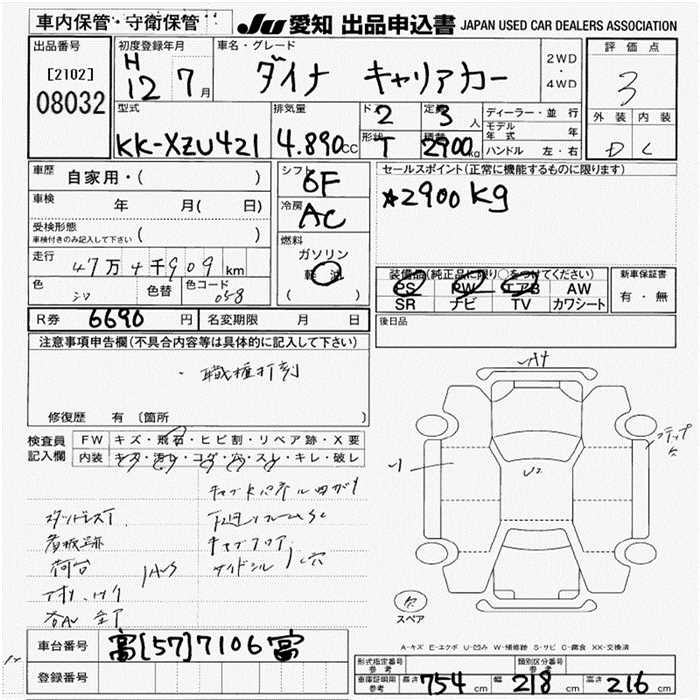 車内保管・守衛保管
JU 愛知 出品申込書 JAPAN USED CAR DEALERS ASSOCIATION
出品番号
[2102]
08032
初度登録年月
H
12 7月
車名・グレード
ダイナ キャリアカー
2WD
・
4WD
評価点
3
外装 内装
D C
型式
KK-XZU421
排気量
4.890cc
ドア 2
定員 3人
形状 T
積載 2900kg
ディーラー・並行
モデル年式 年
ハンドル 左・右
車歴
自家用・( )
車検
年 月( 日)
受検形態
車検付きのみ記入して下さい ( )
走行
47万4千909km
色
シロ
色替
色コード
058
シフト
6F
冷房
AC
燃料
ガソリン
軽油
( )
セールスポイント(正常に機能するものに限ります)
☆2900Kg
装備品(純正品に限り○をつけてください)
PS PW エアB AW
SR ナビ TV カワシート
新車保証書
有・無
後日品
R券 6690円
名変期限 月 日
注意事項申告欄(不具合内容等は具体的に記入して下さい)
・職権打刻
修復歴 有 〔箇所 〕
検査員
記入欄
FW キズ・飛石・ヒビ割・リペア跡・X要
内装 キズ・汚レ・コゲ・穴・スレ・キレ・破レ
スタッドレスT
看板跡
荷台
A4
U2
スペア
A-キズ E-エクボ U-凹み W-補修跡 S-サビ C-腐食 XX-交換済
車台番号 富[57]7106富
登録番号
形式指定番号
参考
類別区分番号
参考
車庫証明用
参考
長さ 754cm 幅 218cm 高さ 216cm